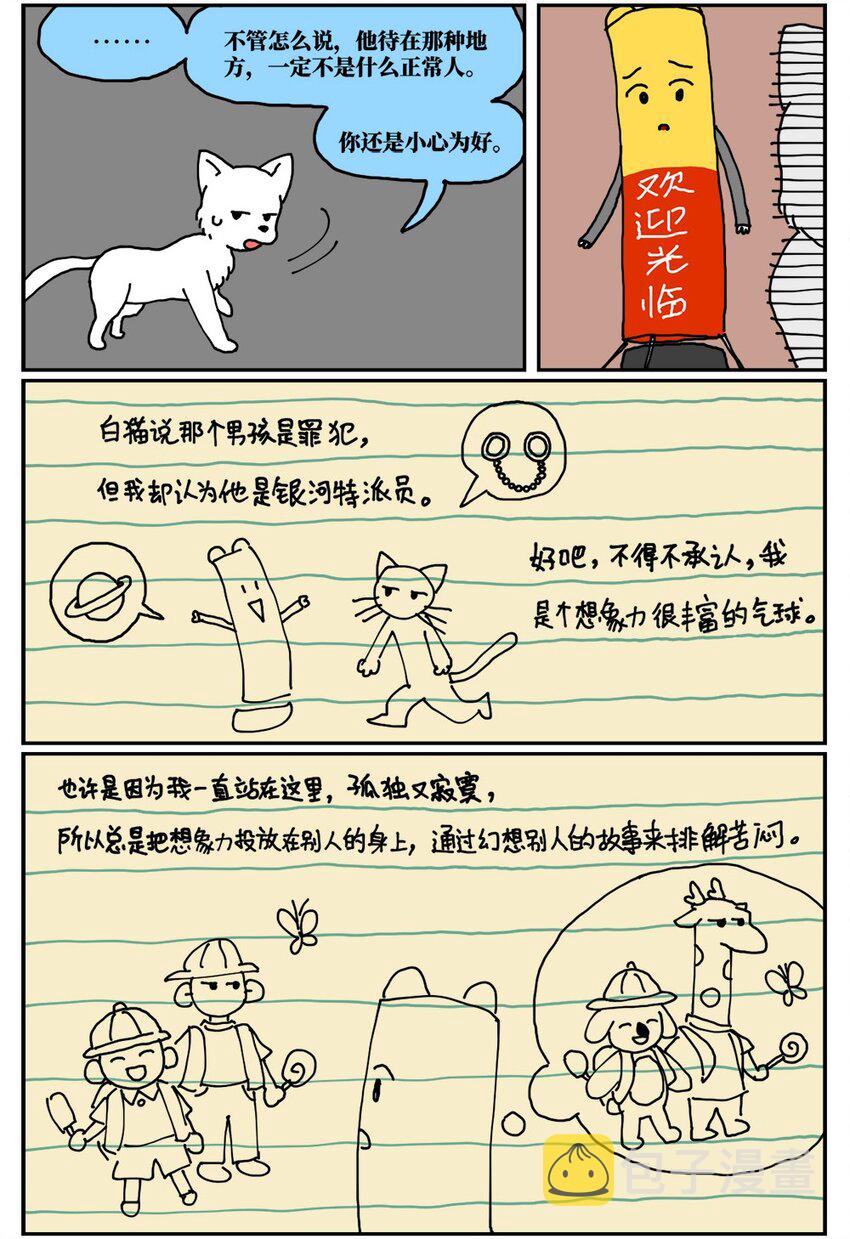 ······
不管怎么说，他待在那种地
方，一定不是什么正常人。
你还是小心为好。
欢
迎
光
临
白猫说那个男孩是罪犯，
但我却认为他是银河特派员。
好吧，不得不承认，我
是个想象力很丰富的气球。
也许是因为我一直站在这里，孤独又寂寞，
所以总是把想象力投放在别人的身上，通过幻想别人的故事来排解苦闷。
包子漫畫